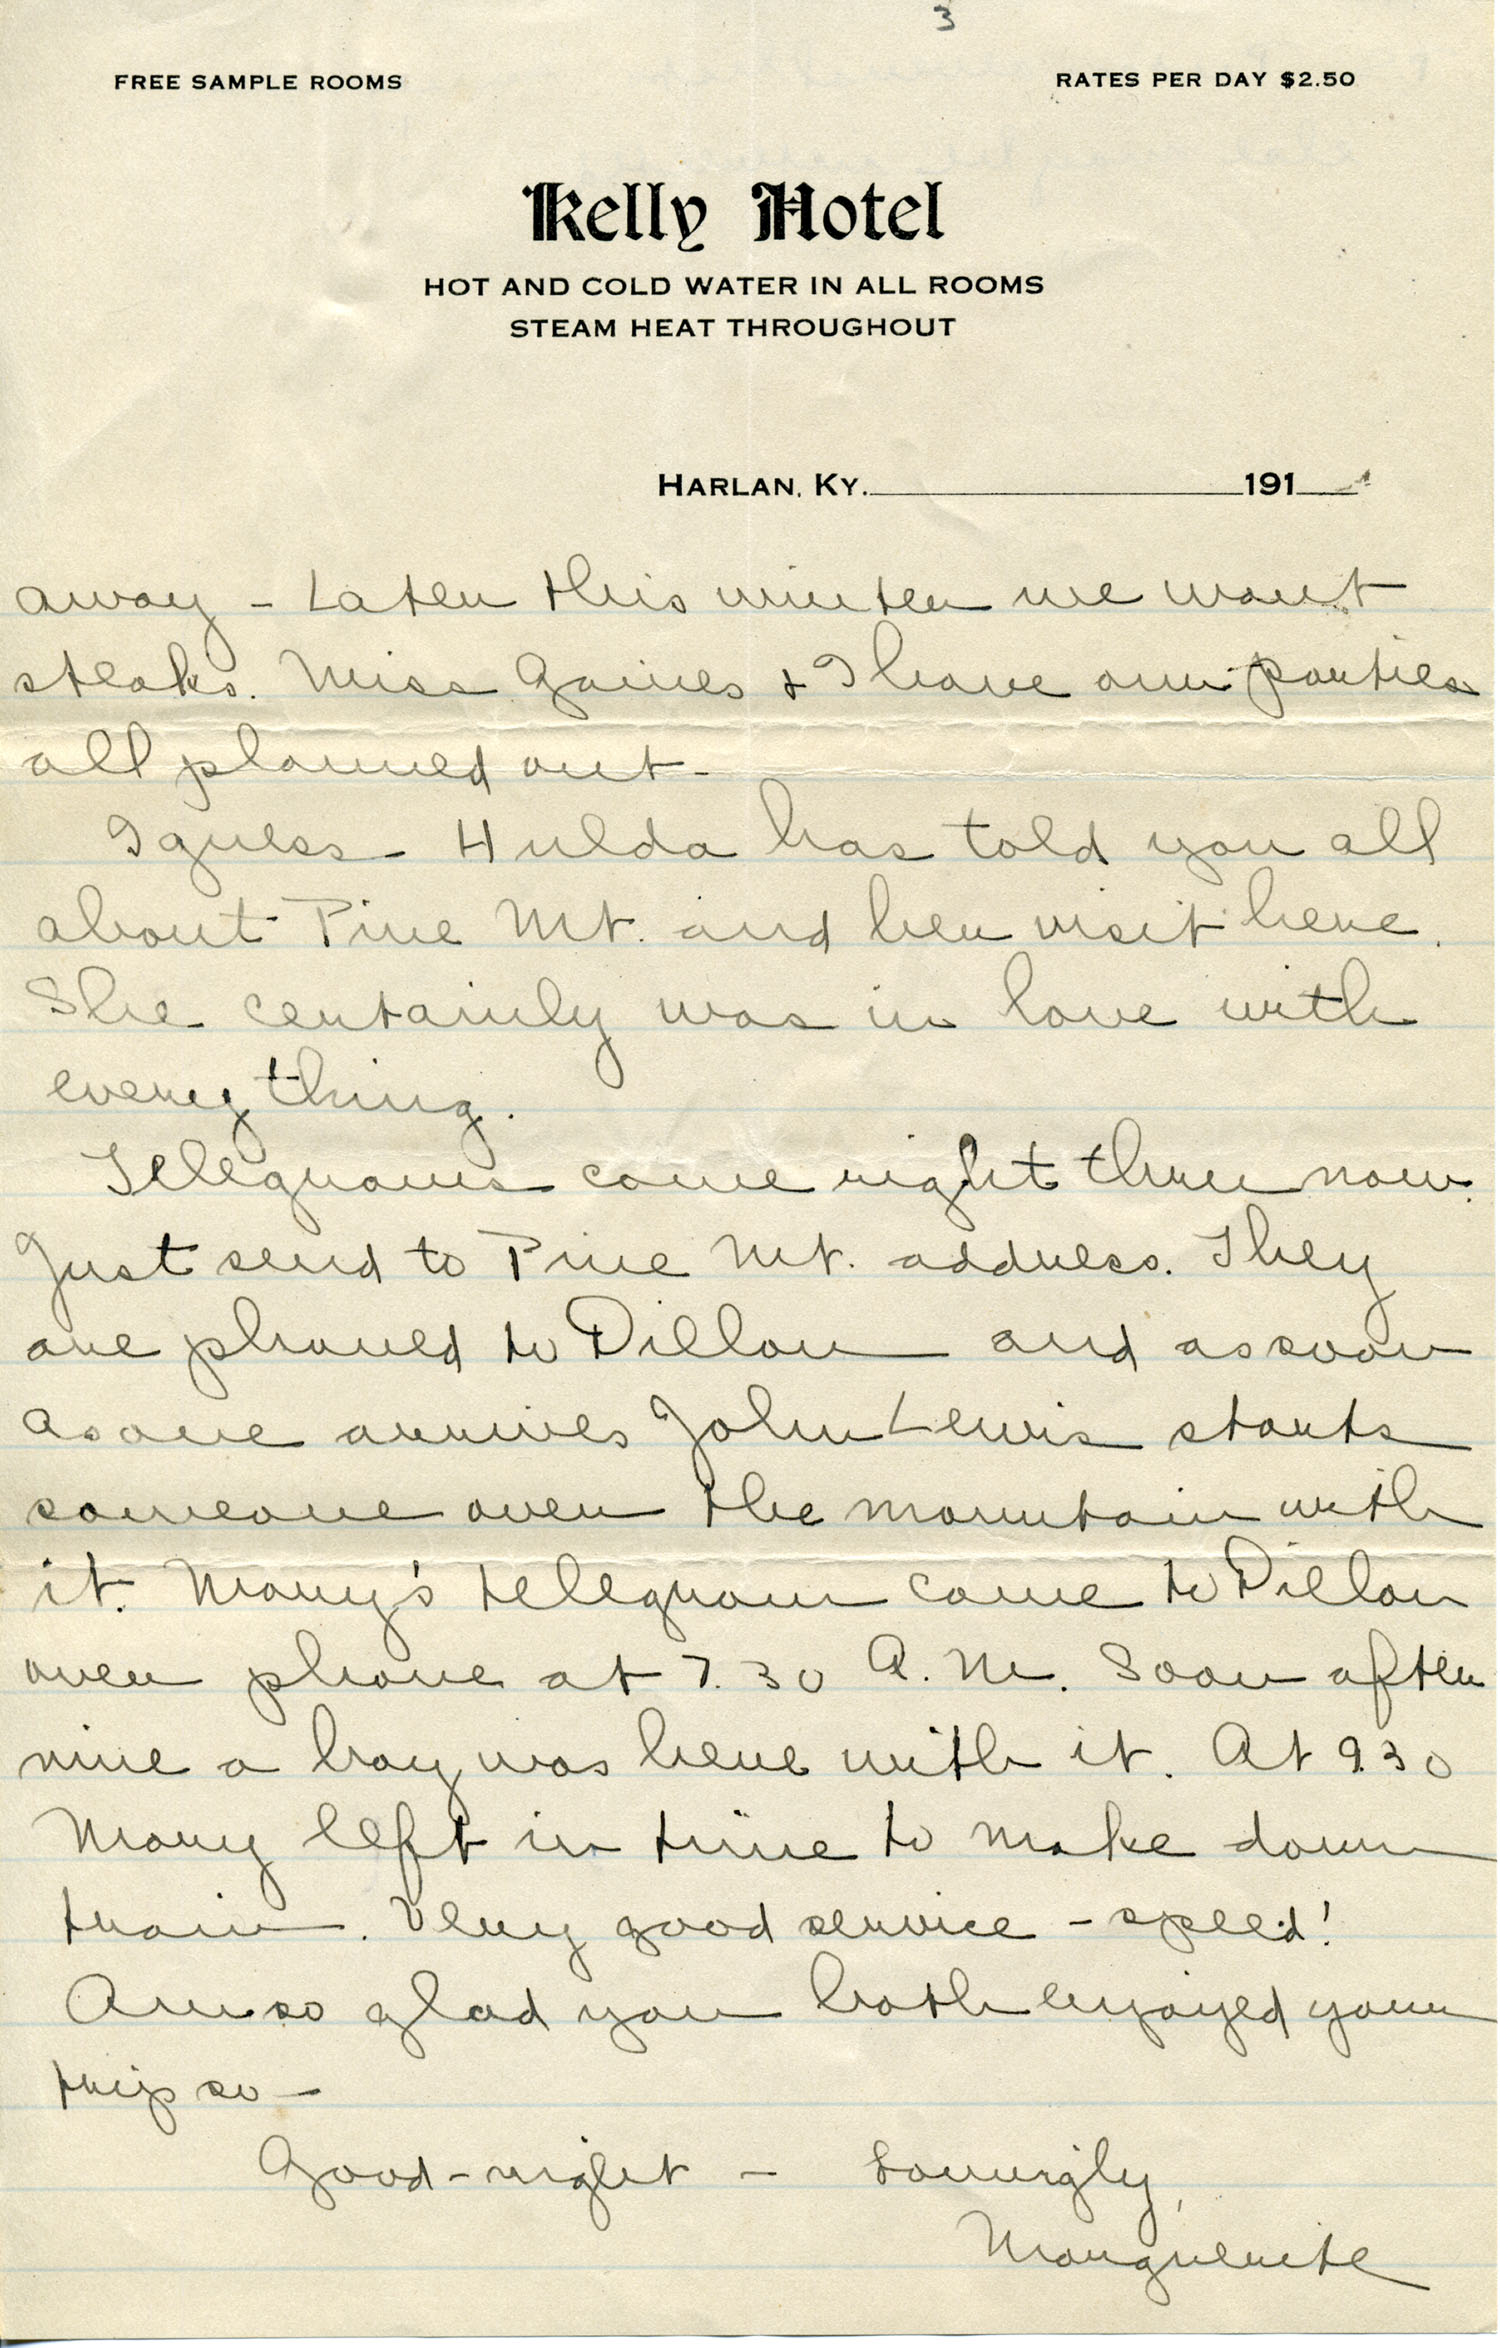 3
FREE SAMPLE ROOMS RATES PER DAY $2.50
Kelly Hotel
HOT AND COLD WATER IN ALL ROOMS
STEAM HEAT THROUGHOUT
HARLAN, KY. 191
away - Later this winter we want
steaks. Miss Gaines & I have our parties
all planned out -
I guess Hulda has told you all
about Pine Mt. and her visit here.
She certainly was in love with
every thing.
Telegrams come right thru now.
Just send to Pine Mt. address. They
are phoned to Dillon and as soon
as one arrives John Lewis starts
someone over the mountain with
it. Mary's telegram came to Dillon
over phone at 7.30 A.M. Soon after
nine a boy was here with it. At 9.30
Mary left in time to make down
train. Very good service - speed!
Am so glad you both enjoyed your
trip so -
Good-night - Lovingly,
Marguerite